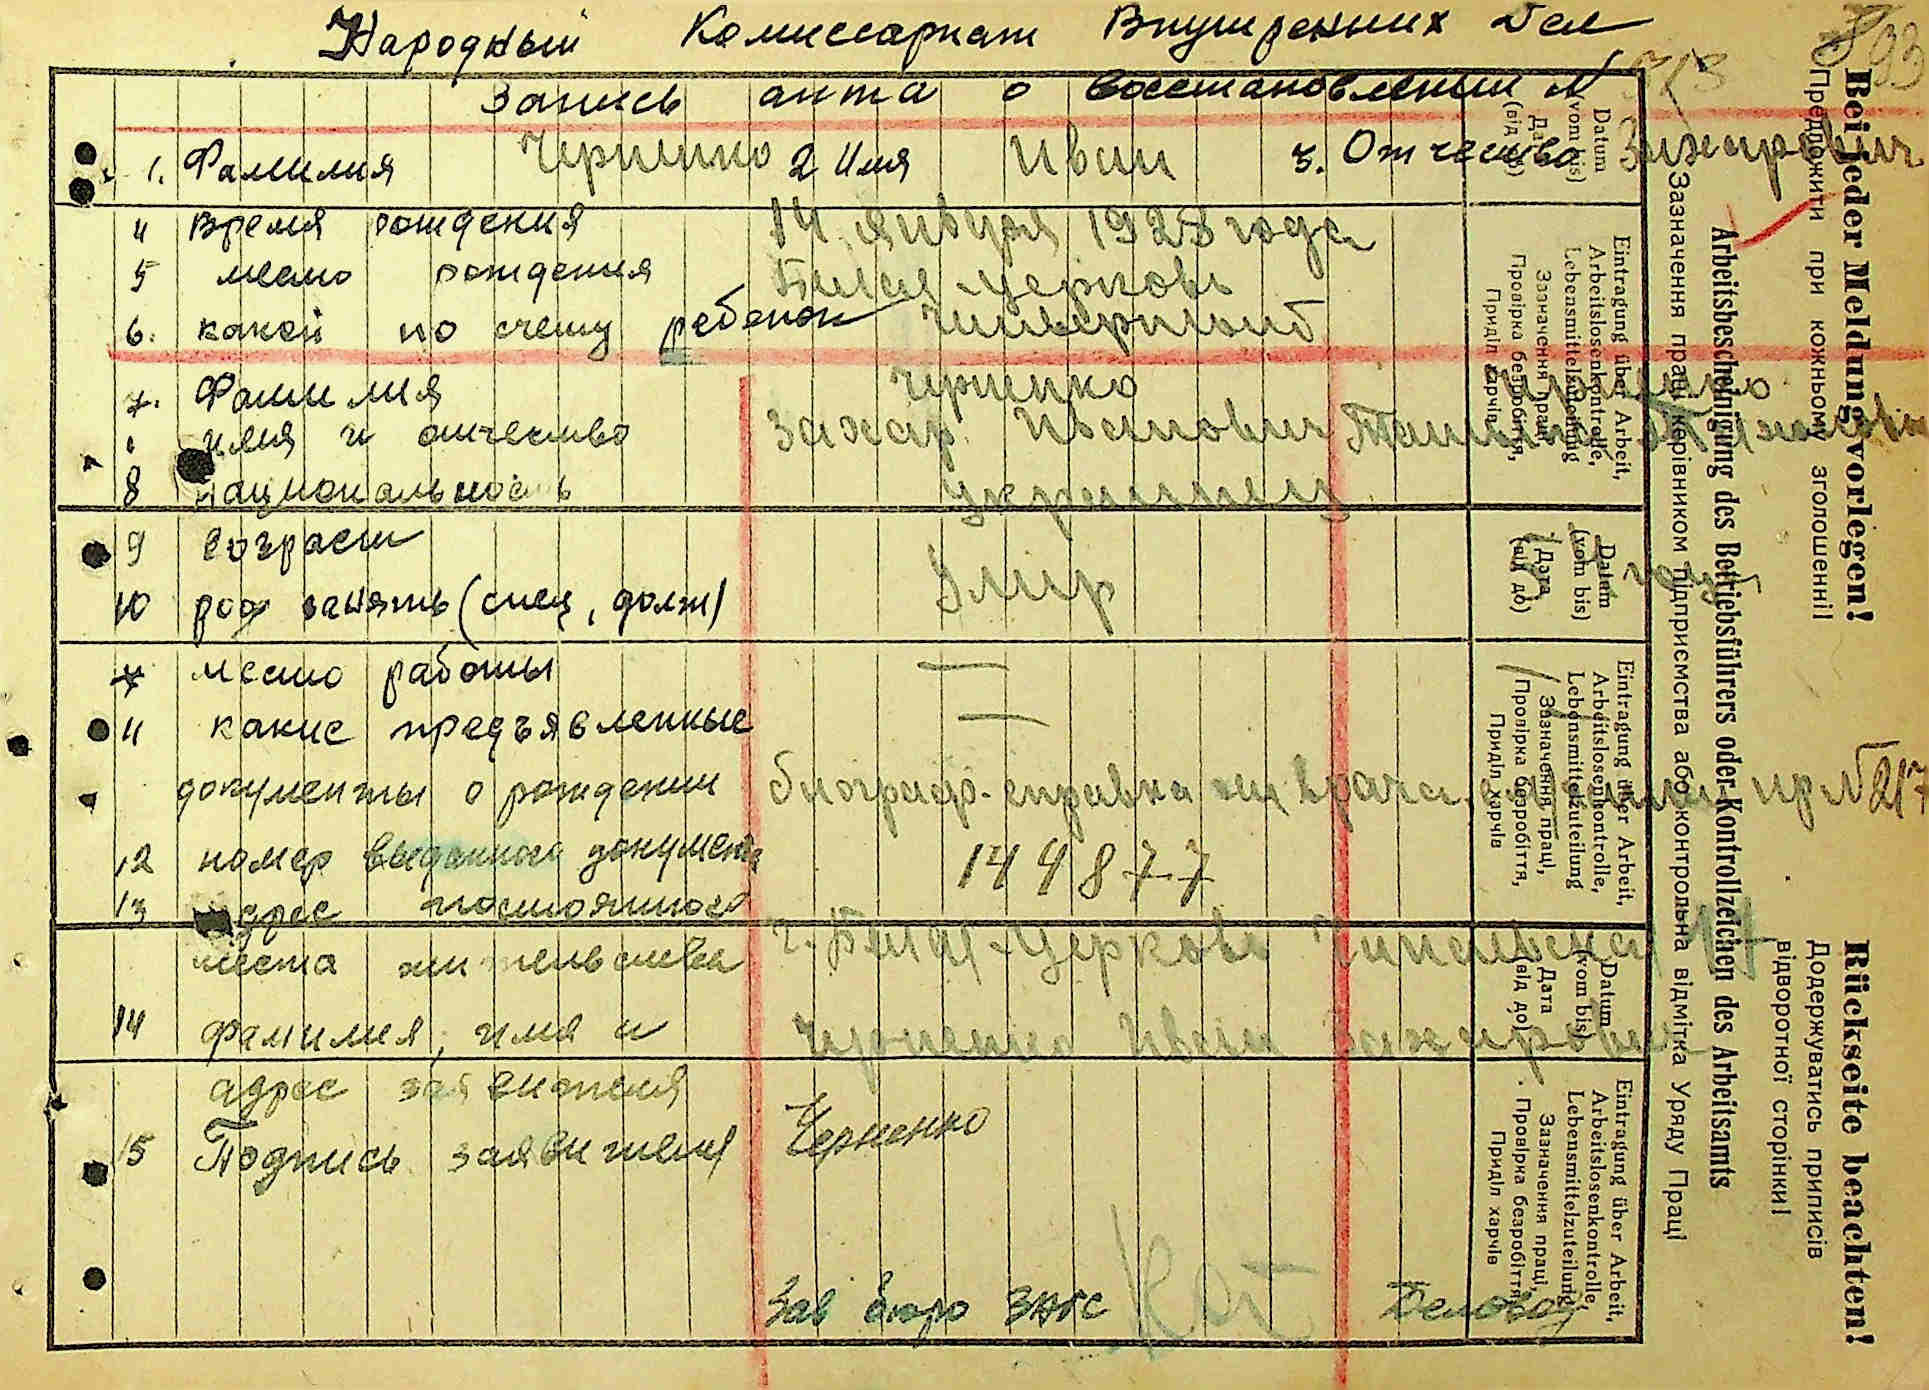 Народный Комиссариат Внутренних Дел
Запись акта о восстановлении N 573
93
1. Фамилия Черненко 2 Имя Иван 3. Отчество Захарович
4 Время рождения 14 января 1923 года
5 место рождения Билая-Церковь
6. какой по счету ребенок
7. Фамилия Черненко
имя и отчество Захар Иванович
8 национальность украинец
9 возраст
10 род занять (спец, долж) Умер
место работы —
11 какие предъявленные —
документы о рождении биограф. справка
12 номер выданного документа 144877
13 адрес постоянного
места жительства г. Билая-Церковь
14 фамилия, имя и Черненко Иван Захарович
адрес заявителя
15 Подпись заявителя Черненко
Зав бюро ЗАГС
Bei jeder Meldung vorlegen!
Предложити при кожньому зголошенні!
Rückseite beachten!
Додержуватись приписів
відворотної сторінки!
Arbeitsbescheinigung des Betriebsführers oder Kontrollzeichen des Arbeitsamts
Зазначення праці керівником підприємства або контрольна відмітка Уряду Праці
Datum
(vom bis)
Дата
(від до)
Eintragung über Arbeit,
Arbeitslosenkontrolle,
Lebensmittelzuteilung
Зазначення праці,
Провірка безробіття,
Приділ харчів
Datum
(vom bis)
Дата
(від до)
Eintragung über Arbeit,
Arbeitslosenkontrolle,
Lebensmittelzuteilung
Зазначення праці,
Провірка безробіття,
Приділ харчів
Datum
(vom bis)
Дата
(від до)
Eintragung über Arbeit,
Arbeitslosenkontrolle,
Lebensmittelzuteilung
Зазначення праці,
Провірка безробіття,
Приділ харчів